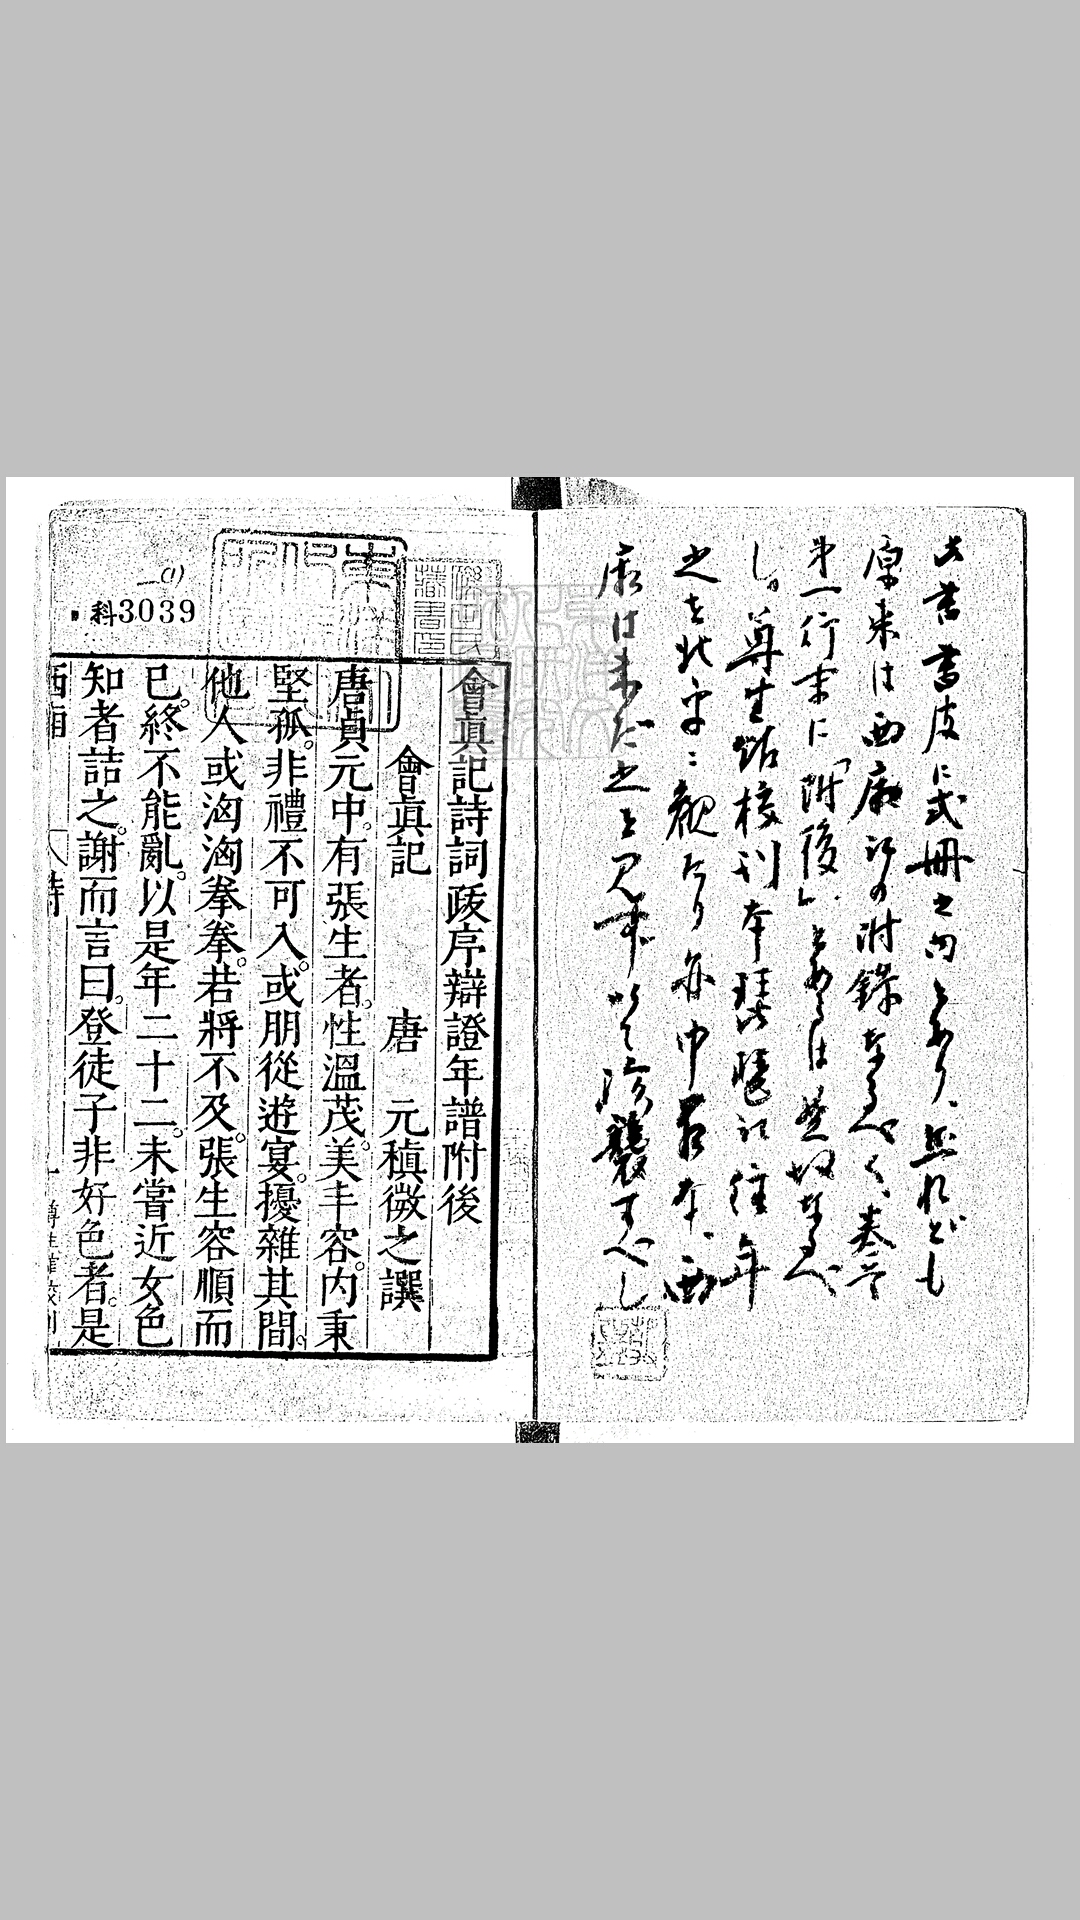 此書書皮に弐冊之内とあり、然れども
原来は西廂記の附錄なるべく、巻首
第一行末に「附後」とあるは其故なるべ
し。尊生館校刋本琵琶記往年
之を北平に観たり亦中々な西
廂は未だ之を見ず以て珍襲すべし
(1)
科3039
會真記詩詞跋序辯證年譜附後
會真記 唐 元稹微之譔
唐貞元中。有張生者。性溫茂。美丰容。內秉
堅孤。非禮不可入。或朋從遊宴。擾雜其間。
他人或洶洶拳拳。若將不及。張生容順而
已。終不能亂。以是年二十二。未嘗近女色
知者詰之。謝而言曰。登徒子非好色者。是
西廂